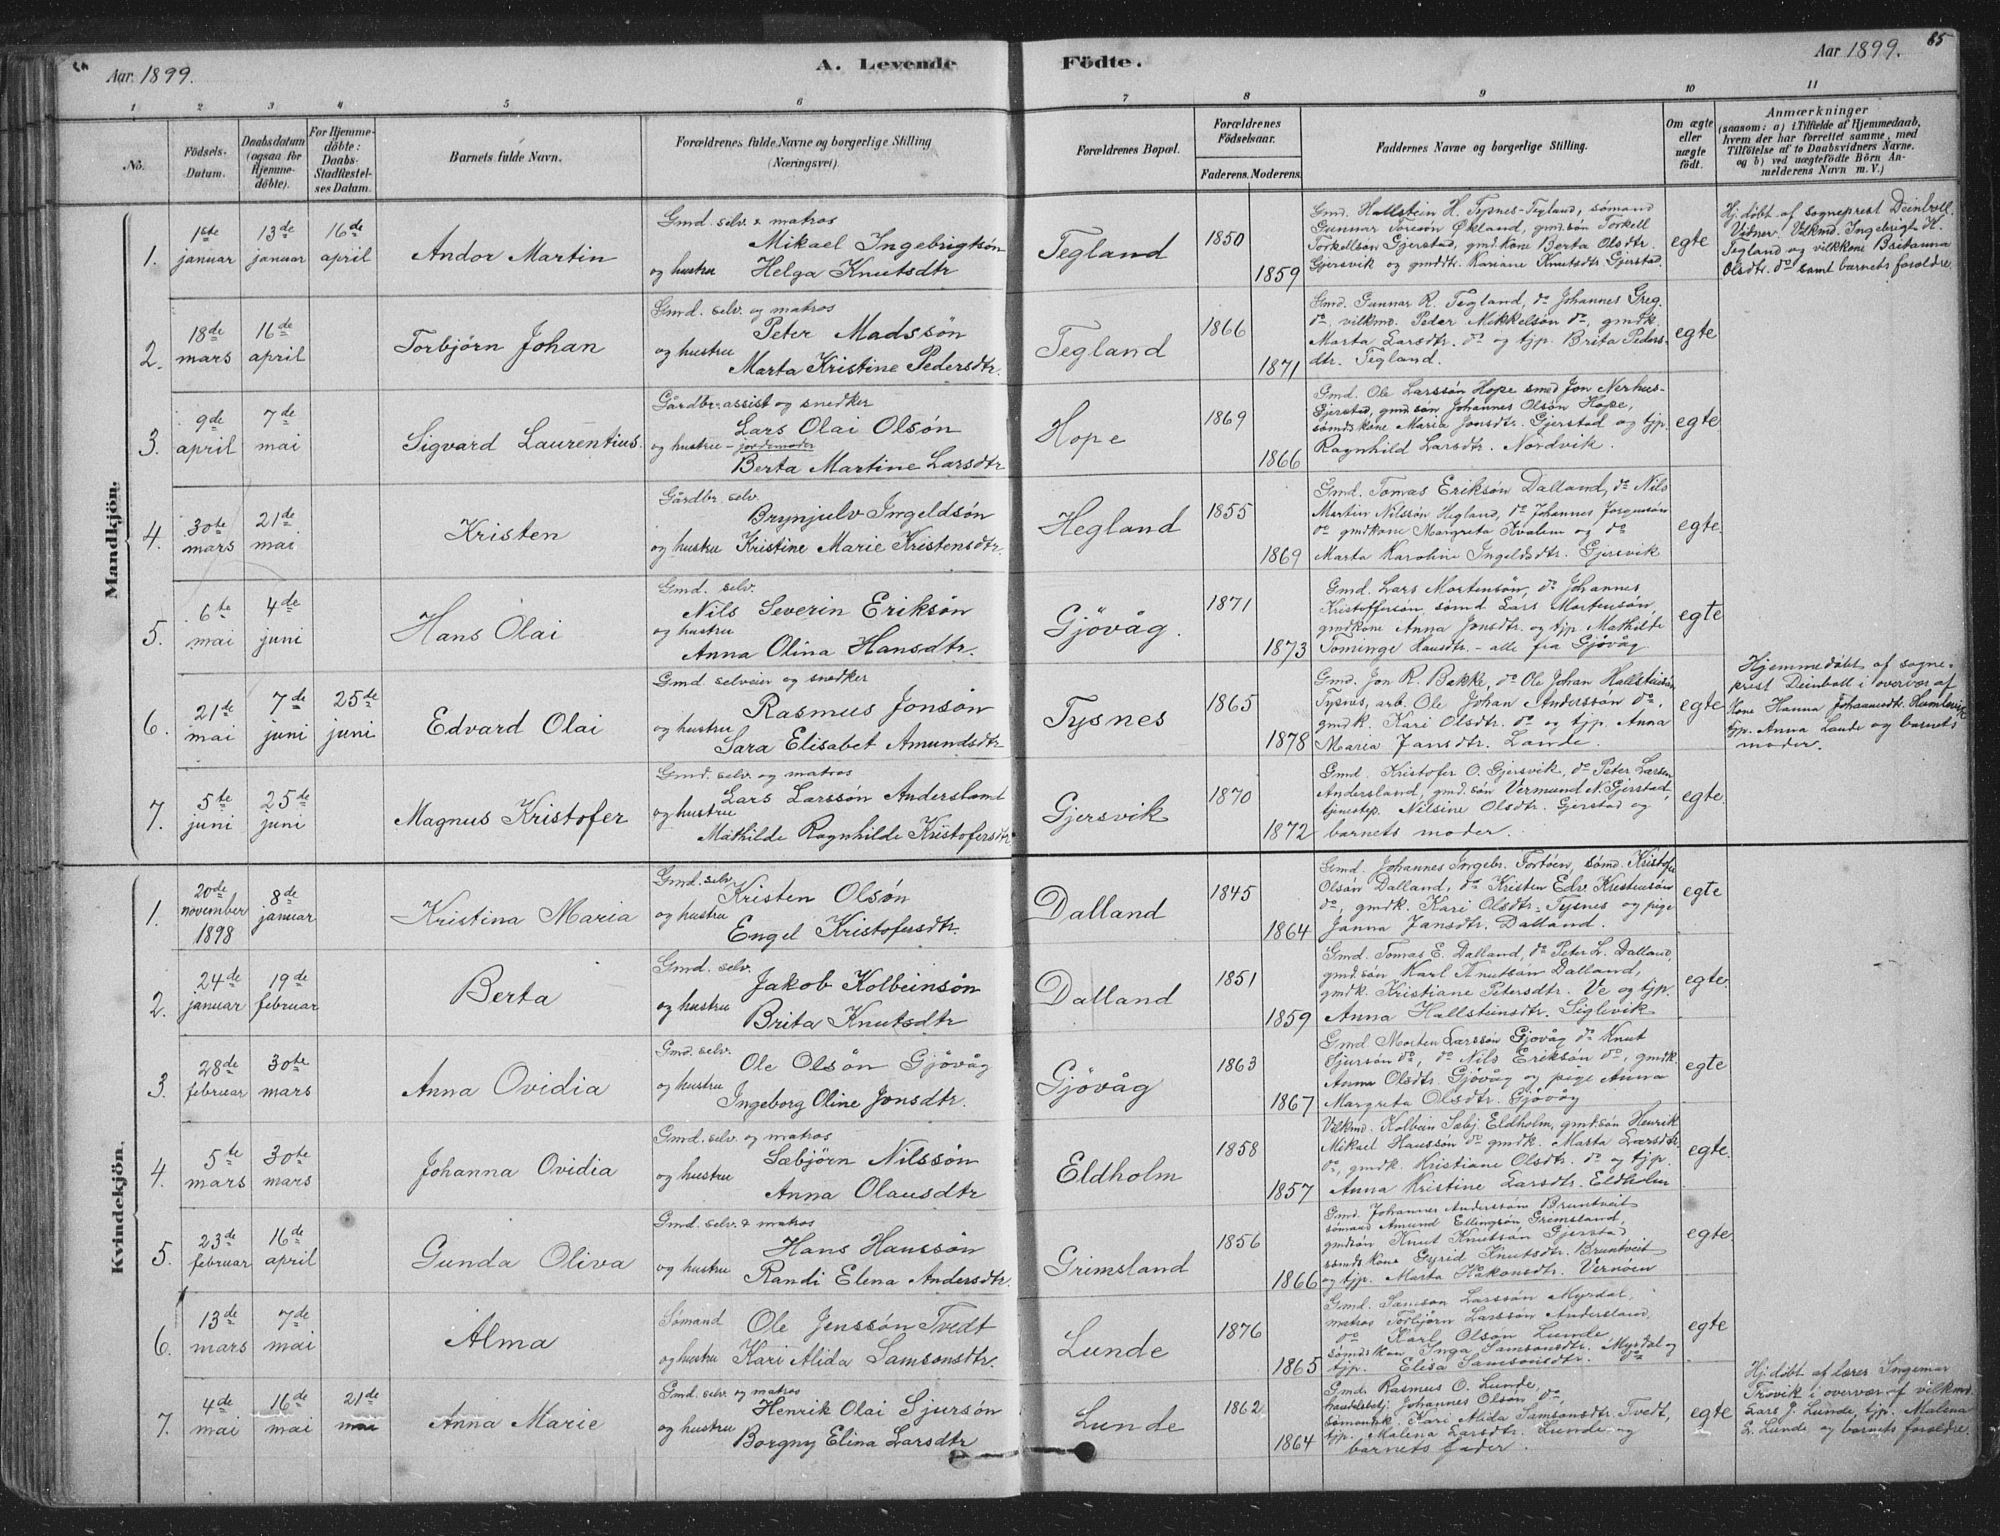 Aar 1899.
A. Levende Födte.
Aar 1899. 85
1 2 3 4 5 6 7 8 9 10 11
No.
Födsels-Datum.
Daabsdatum (ogsaa for Hjemmedöbte).
For Hjemmedöbte: Daabs-Stadfæstelses Datum.
Barnets fulde Navn.
Forældrenes fulde Navne og borgerlige Stilling (Næringsvei).
Forældrenes Bopæl.
Forældrenes Födselsaar.
Faderens. Moderens.
Faddernes Navne og borgerlige Stilling.
Om ægte eller uægte födt.
Anmærkninger
(saasom: a) i Tilfælde af Hjemmedaab, hvem der har forrettet samme, med Tilföielse af to Daabsvidners Navne. og b) ved uægtefödte Börn Anmelderens Navn m. V.)
Mandkjön.
1. 1ste januar 13de januar 16de april
Andor Martin
Gmd. selv. & matros
Mikael Ingebrigtsön
og hustru Helga Knutsdtr
Tegland
1850
1859
Gmd. Hallstein H. Tysnes-Tegland, sömand
Gunnar Toresön Økland, gmd.sön Torkell
Torkellsön Gjerstad, gmd.kone Berta Olsdtr.
Gjersvik og gmddtr. Kariane Knutsdtr Gjerstad.
egte
Hj. döbt af sogneprest Deinboll.
Vitner: Vilkmd. Ingebrigt H.
Tegland og vilkkone Britanna
Olsdtr. do samt barnets foreldre.
2. 18de mars 16de april
Torbjörn Johan
Gmd. selv. og matros
Peter Madssön
og hustru
Marta Kristine Pedersdtr.
Tegland
1866
1871
Gmd. Gunnar R. Tegland, do Johannes Greg.
do, vilkmd. Peder Mikkelsön do, gmdk.
Marta Larsdtr. do og tjp. Brita Peders-
dtr. Tegland.
egte
3. 9de april 7de mai
Sigvard Laurentius.
Gårdbr. assist og snedker
Lars Olai Olsön
og hustru - jordemoder
Berta Martine Larsdtr
Hope
1869
1866
Gmd. Ole Larssön Hope smed Jon Nerhus-
Gjerstad, gmd.sön Johannes Olsön Hope,
sömdskone Maria Jonsdtr. Gjerstad og tjp.
Ragnhild Larsdtr. Nordvik.
egte
4. 30te mars 21de mai
Kristen
Gårdbr. selv.
Brynjulv Ingeldsön
og hustru Kristine Marie Kristensdtr.
Hegland
1855
1869
Gmd. Tomas Eriksön Dalland, do Nils
Martin Nilssön Hegland, do Johannes Jörgensön
do gmdkone Margreta Kvalem og do
Marta Karoline Ingeldsdtr. Gjersvik
egte
5. 6te mai 4de juni
Hans Olai
Gmd. selv.
Nils Severin Eriksön
og hustru
Anna Olina Hansdtr.
Gjövåg.
1871
1873
Gmd. Lars Mortensön, do Johannes
Kristoffersön, sömd Lars Mortensön,
gmdkone Anna Jonsdtr. og tjp Mathilde
Tominge Hansdtr. - alle fra Gjövåg
egte
6. 21de mai 7de juni 25de juni
Edvard Olai
Gmd selveier og snedker
Rasmus Jonsön
og hustru
Sara Elisabet Amundsdtr
Tysnes
1865
1878
Gmd. Jon R. Bakke, do Ole Johan Hallsteinsön
Tysnes, arb. Ole Johan Anderssön do,
gmdk. Kari Olsdtr. do og tjp. Anna
Maria Jansdtr. Lande.
egte
Hjemmedöbt af sogne-
prest Deinboll i overvær af
Kone Hanna Johannesdtr.
tjp. Anna Lande og barnets
moder.
7. 5te juni 25de juni
Magnus Kristofer
Gmd. selv. og matros
Lars Larssön Andersland
og hustru
Mathilde Ragnhilde Kristofersdtr
Gjersvik
1870
1872
Gmd. Kristofer O. Gjersvik, do Peter Larsen
Andersland, gmd.sön Vermund N. Gjerstad,
tjenestep. Nilsine Olsdtr. Gjerstad og
barnets moder.
egte
Kvindekjön.
1. 20de november 1898 8de januar
Kristina Maria
Gmd. selv.
Kristen Olsön
og hustru
Engel Kristofersdtr.
Dalland
1845
1864
Gmd. Johannes Ingebr. Tortöen, sömd. Kristofer
Olsön Dalland, do Kristen Edv. Kristensön
do, gmdk. Kari Olsdtr. Tysnes og pige
Janna Jansdtr. Dalland.
egte
2. 24de januar 19de februar
Berta
Gmd. selv.
Jakob Kolbeinsön
og hustru
Brita Knutsdtr
Dalland
1851
1859
Gmd. Tomas E. Dalland, do Peter L. Dalland,
gmd.sön Karl Knutsön Dalland,
gmdk. Kristiane Petersdtr. Ve og tjp.
Anna Hallsteinsdtr. Siglevik
egte
3. 28de februar 30te mars
Anna Ovidia
Gmd. selv.
Ole Olsön Gjövåg
og hustru
Ingeborg Oline Jonsdtr.
Gjövåg
1863
1867
Gmd Morten Larssön Gjövåg do Knut
Sjursön do, do Nils Eriksön do, gmdk.
Anna Olsdtr. Gjövåg og pige Anna
Margreta Olsdtr. Gjövåg
egte
4. 5te mars 30te mars
Johanna Ovidia
Gmd. selv. og matros
Sæbjörn Nilssön
og hustru
Anna Olausdtr
Eldholm
1858
1857
Vilkmd. Kolbein Sæbj. Eldholm, gmd.sön Henrik
Mikael Hanssön do gmdk. Marta Larsdtr
do, gmdk. Kristiane Olsdtr. do og tjp.
Anna Kristine Larsdtr. Eldholm
egte.
5. 23de februar 16de april
Gunda Oliva
Gmd. selv. & matros
Hans Hanssön
og hustru Randi Elena Andersdtr.
Grimsland
1856
1866
Gmd. Johannes Anderssön Bruntveit
sömand Amund Ellingsön Grimsland,
gmdsön Knut Knutsön Gjerstad
sömdskone Gyrid Knutsdtr. Bruntveit
og tjp. Marta Håkonsdtr. Vernöen
egte.
6. 13de mars 7de mai
Alma
Sömand Ole Jenssön Tvedt
og hustru Kari Alida Samsonsdtr.
Lunde
1876
1865
Gmd. Samson Larssön Myrdal,
matros Torbjörn Larssön Andersland,
do Karl Olsön Lunde
sömdskon Inga Samsonsdtr. Myrdal og
tjp. Elisa Samsonsdtr. do
egte
7. 4de mai 16de mai 21de
Anna Marie
Gmd. selv og matros
Henrik Olai Sjursön
og hustru
Borgny Elina Larsdtr
Lunde
1862
1864
Gmd. Rasmus O. Lunde,
handelsbetj. Johannes Olsön do,
sömandsk. Kari Alida Samsonsdtr. Tvedt,
tjp. Malena Larsdtr. Lunde og
barnets fader.
egte
Hj. döbt af lærer Ingemar
Trovik i overvær af vilkmd.
Lars J. Lunde, tjp. Malena
L. Lunde og barnets foreldre.